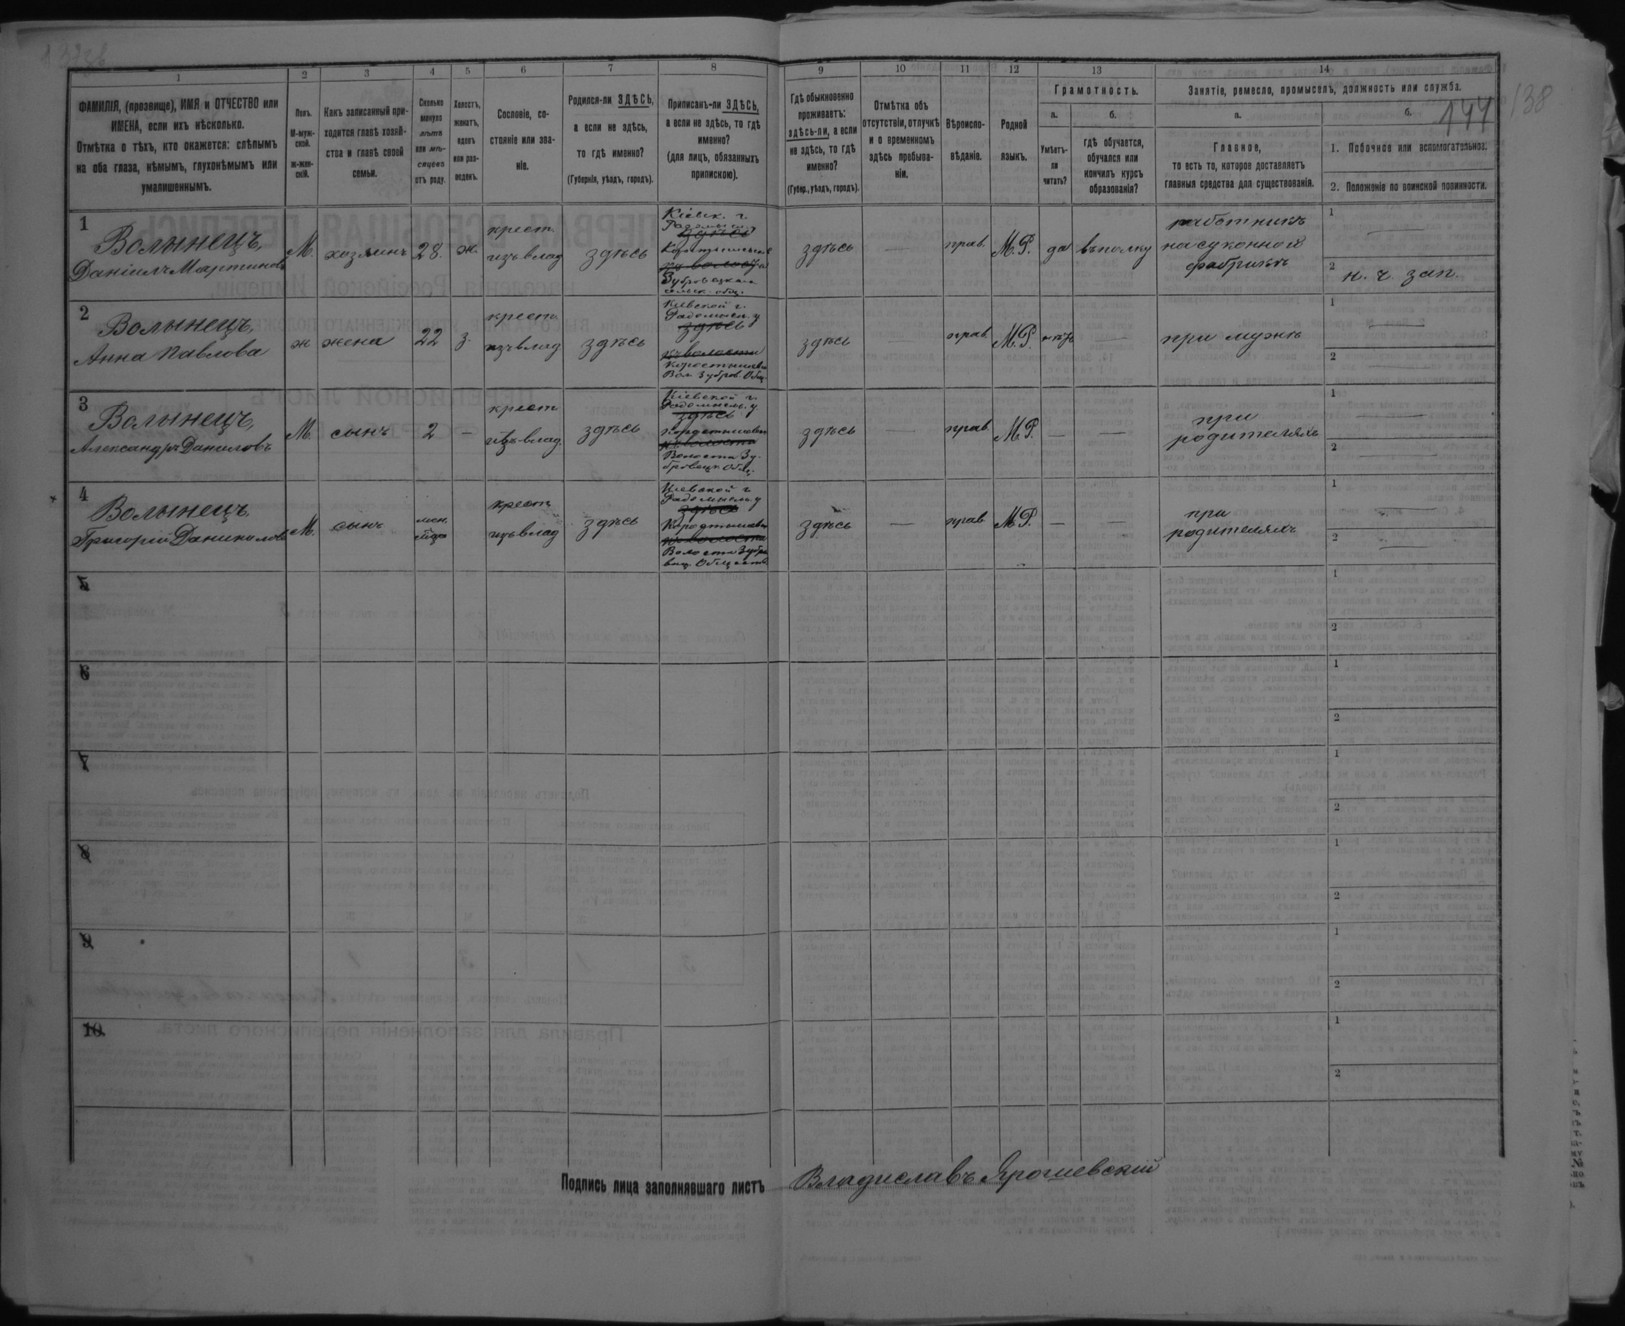 138
144
1
2
3
4
5
6
7
8
9
10
11
12
13
14
ФАМИЛІЯ, (прозвище), ИМЯ и ОТЧЕСТВО или
ИМЕНА, если ихъ нѣсколько.
Отмѣтка о тѣхъ, кто окажется: слѣпымъ
на оба глаза, нѣмымъ, глухонѣмымъ или
умалишеннымъ.
Полъ.
М-муж-
ской.
Ж-жен-
скій.
Какъ записанный при-
ходится главѣ хозяй-
ства и главѣ своей
семьи.
Сколько
минуло
лѣтъ
или мѣ-
сяцевъ
отъ роду.
Холостъ,
женатъ,
вдовъ
или раз-
веденъ.
Сословіе, со-
стояніе или зва-
ніе.
Родился-ли ЗДѢСЬ,
а если не здѣсь,
то гдѣ именно?
(Губернія, уѣздъ, городъ).
Приписанъ-ли ЗДѢСЬ,
а если не здѣсь, то гдѣ
именно?
(для лицъ, обязанныхъ
припискою).
Гдѣ обыкновенно
проживаетъ:
здѣсь-ли, а если
не здѣсь, то гдѣ
именно?
(Губер., уѣздъ, городъ).
Отмѣтка объ
отсутствіи, отлучкѣ
и о временномъ
здѣсь пребыва-
ніи.
Вѣроиспо-
вѣданіе.
Родной
языкъ.
Грамотность.
а.
Умѣетъ-
ли
читать?
б.
гдѣ обучается,
обучался или
кончилъ курсъ
образованія?
Занятіе, ремесло, промыселъ, должность или служба.
а.
Главное,
то есть то, которое доставляетъ
главныя средства для существованія.
б.
1. Побочное или вспомогательное.
2. Положеніе по воинской повинности.
1
Волынецъ,
Даніилъ Мартиновъ
М.
хозяинъ
28.
ж.
крест.
изъ влад
здѣсь
Кіевск. г.
здѣсь
сельск. общ.
здѣсь
—
прав.
М.Р.
да
работникъ
на суконной
фабрикѣ
1 —
2 н. ч. зап.
2
Волынецъ,
Анна Павлова
ж
жена
22
з.
крест
изъ влад
здѣсь
Кіевской г.
Радомысл. у
здѣсь
Вол Зубров. Общ.
здѣсь
—
прав
М.Р.
нѣтъ
—
при мужѣ
1 —
2 —
3
Волынецъ,
Александръ Даниловъ
М.
сынъ
2
—
крест
изъ влад
здѣсь
Кіевской г.
Радомысл. у.
здѣсь
здѣсь
—
прав
М.Р.
—
—
при
родителяхъ
1 —
2 —
4
Волынецъ,
Григорій Даниловъ
М.
сынъ
крест
изъ влад
здѣсь
Кіевской г.
Радомысл. у
здѣсь
здѣсь
—
прав
М.Р.
—
—
при
родителяхъ
1 —
2 —
5
1
2
6
1
2
7
1
2
8
1
2
9
1
2
10.
1
2
Подпись лица заполнявшаго листъ Владиславъ Ярошевскій